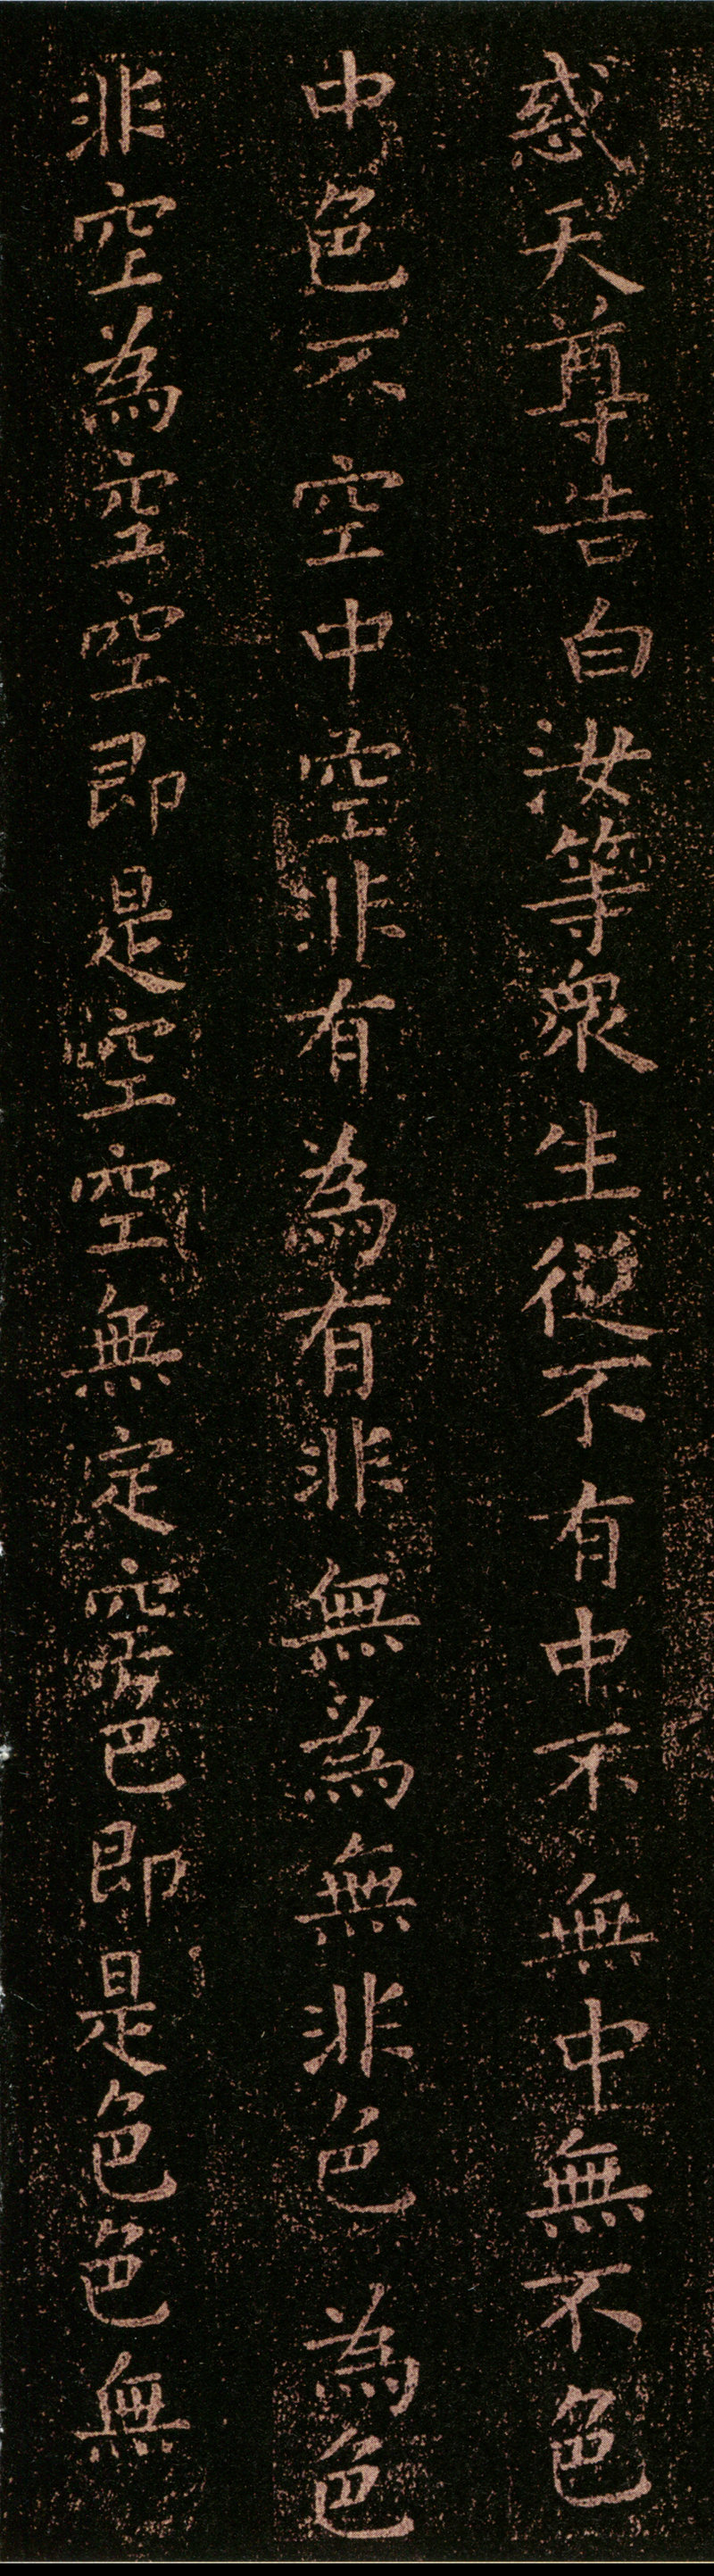 惑天尊告白汝等眾生從不有中不無中無不色
中色不空中空非有為有非無為無非色為色
非空為空空即是空空無定空色即是色色無